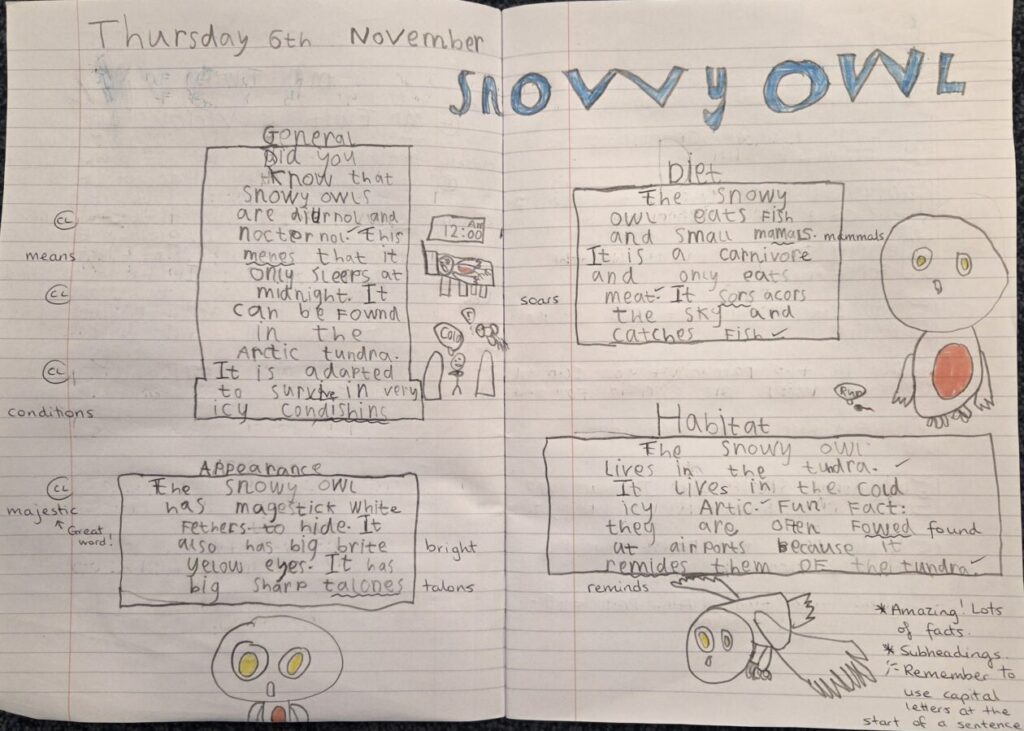 Thursday 6th November
SNOWY OWL
General
Did you
know that
snowy owls
are diurnol and
nocternol. This
menes that it
only sleeps at
midnight. It
can be found
in the
Arctic tundra.
It is adapted
to survive in very
icy condishins
CL
means
CL
CL
conditions
12:00 Am
Cold
F
Appearance
the snowy owl
has magestick white
fethers to hide. It
also has big brite
yelow eyes. It has
big sharp talones
CL
majestic
Great
word!
bright
talons
Diet
the snowy
owl eats fish
and small mamals. mammals
It is a carnivore
and only eats
meat. It sors acors
the sky and
catches fish
soars
Run
Habitat
the snowy owl
lives in the tundra.
It lives in the cold
icy Artic. Fun Fact:
they are often fowed found
at airports because it
remides them of the tundra.
reminds
* Amazing! Lots
of facts.
* Subheadings.
Remember to
use capital
letters at the
start of a sentence